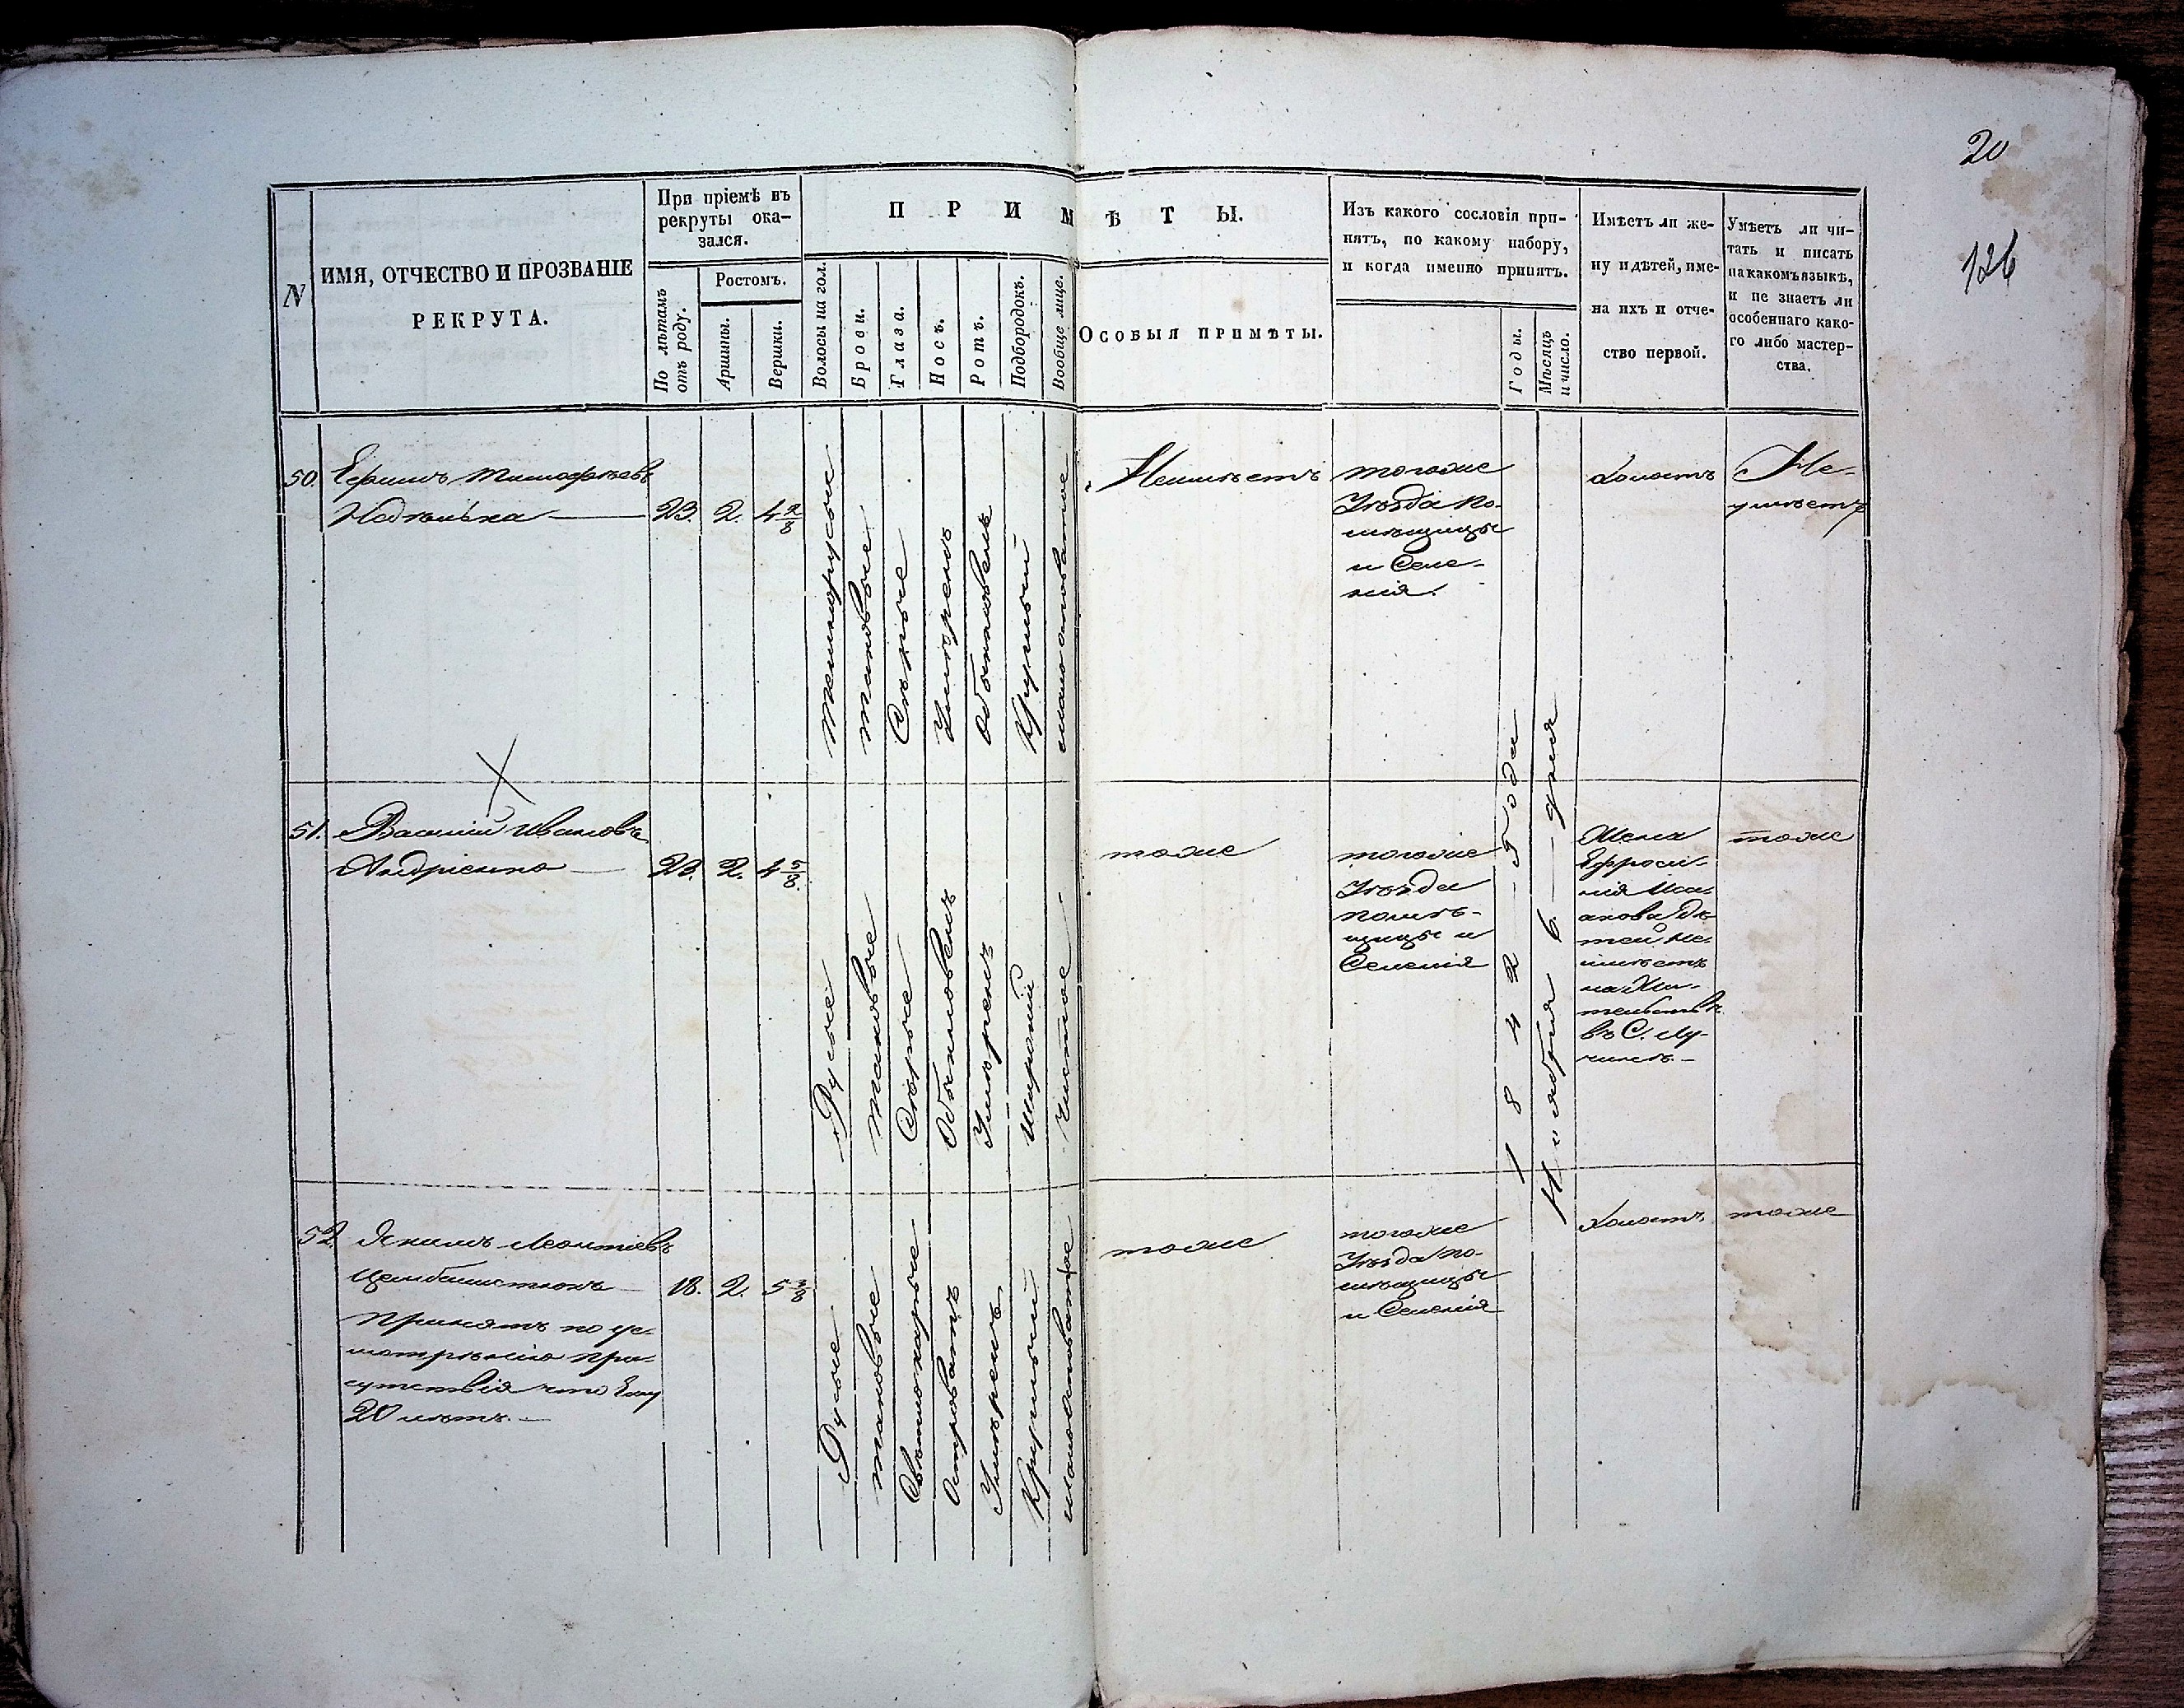 20
126
N
ИМЯ, ОТЧЕСТВО И ПРОЗВАНІЕ
РЕКРУТА.
При пріемѣ въ
рекруты ока-
зался.
По лѣтамъ
отъ роду.
Ростомъ.
Аршины.
Вершки.
ПРИМѢТЫ.
Волосы на гол.
Брови.
Глаза.
Носъ.
Ротъ.
Подбородокъ.
Вообще лице.
Особыя примѣты.
Изъ какого сословія при-
нятъ, по какому набору,
и когда именно принятъ.
Годы.
Мѣсяцъ
и число.
Имѣетъ ли же-
ну и дѣтей, име-
на ихъ и отче-
ство первой.
Умѣетъ ли чи-
тать и писать
на какомъ языкѣ,
и не знаетъ ли
особеннаго како-
го либо мастер-
ства.
50.
Ефимъ Тимофѣевъ
Недѣлька
23.
2.
4 2/8
Темнорусые
таковые
Сѣрые
Умѣренъ
Обыкновенъ
Круглый
Неимѣетъ
тогоже
Уѣзда По-
мѣщицы
и Селе-
нія.
холостъ
Не-
умѣетъ
51.
Василій Ивановъ
Андріенко
23.
2.
4 5/8.
Русые
таковые
Сѣрые
Обыкновенъ
Умѣренъ
Широкій
Чистое
тоже
тогоже
Уѣзда
помѣ-
щицы и
Селенія
Жена
Ефроси-
нія Иса-
акова дѣ-
тей не-
имѣетъ
на жи-
тельствѣ
въ С.
тоже
1842 Года
Ноября 6. дня
52.
Якимъ Леонтіевъ
18.
2.
5 3/8
Принятъ по ус-
мотрѣнію при-
сутствія что Ему
20 лѣтъ.
Русые
таковые
Свѣтлокаріе
Островатъ
Умѣренъ
Круглый
тоже
тогоже
Уѣзда По-
мѣщицы
и Селенія
холостъ
тоже